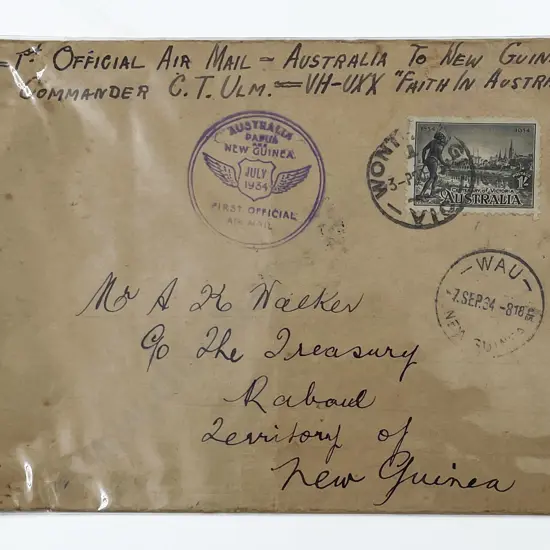 1st OFFICIAL AIR MAIL - AUSTRALIA TO NEW GUIN
COMMANDER C.T. ULM. = VH-UXX "FAITH IN AUSTRA
AUSTRALIA
PAPUA
AND
NEW GUINEA
JULY
1934
FIRST OFFICIAL
AIR MAIL
WONT
VIA
1834 1934
1/-
AUSTRALIA
-WAU-
-7.SEP.34-8 18
NEW GUINEA
Mr A K Walker
C/o The Treasury
Rabaul
Territory of
New Guinea